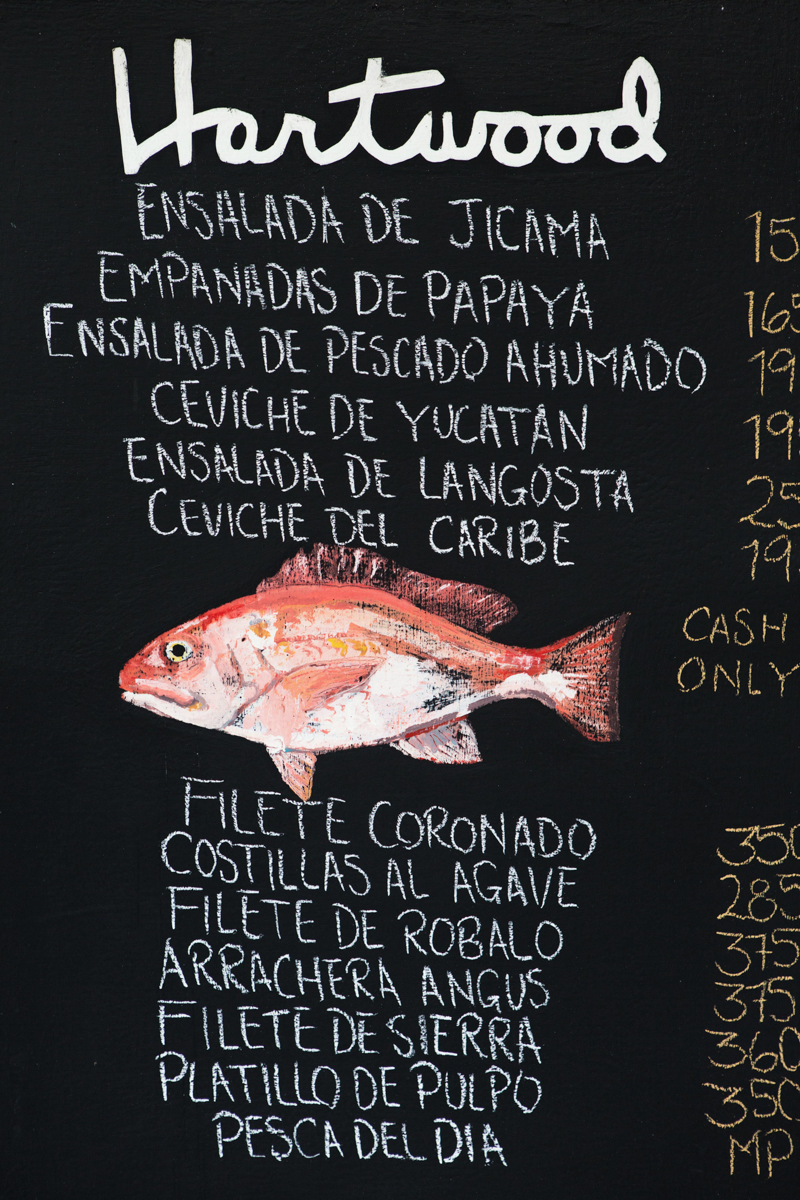 Hartwood
ENSALADA DE JICAMA
EMPANADAS DE PAPAYA 165
ENSALADA DE PESCADO AHUMADO
CEVICHE DE YUCATAN
ENSALADA DE LANGOSTA
CEVICHE DEL CARIBE
CASH
ONLY
FILETE CORONADO 350
COSTILLAS AL AGAVE 285
FILETE DE ROBALO 375
ARRACHERA ANGUS 375
FILETE DE SIERRA 360
PLATILLO DE PULPO 350
PESCA DEL DIA MP